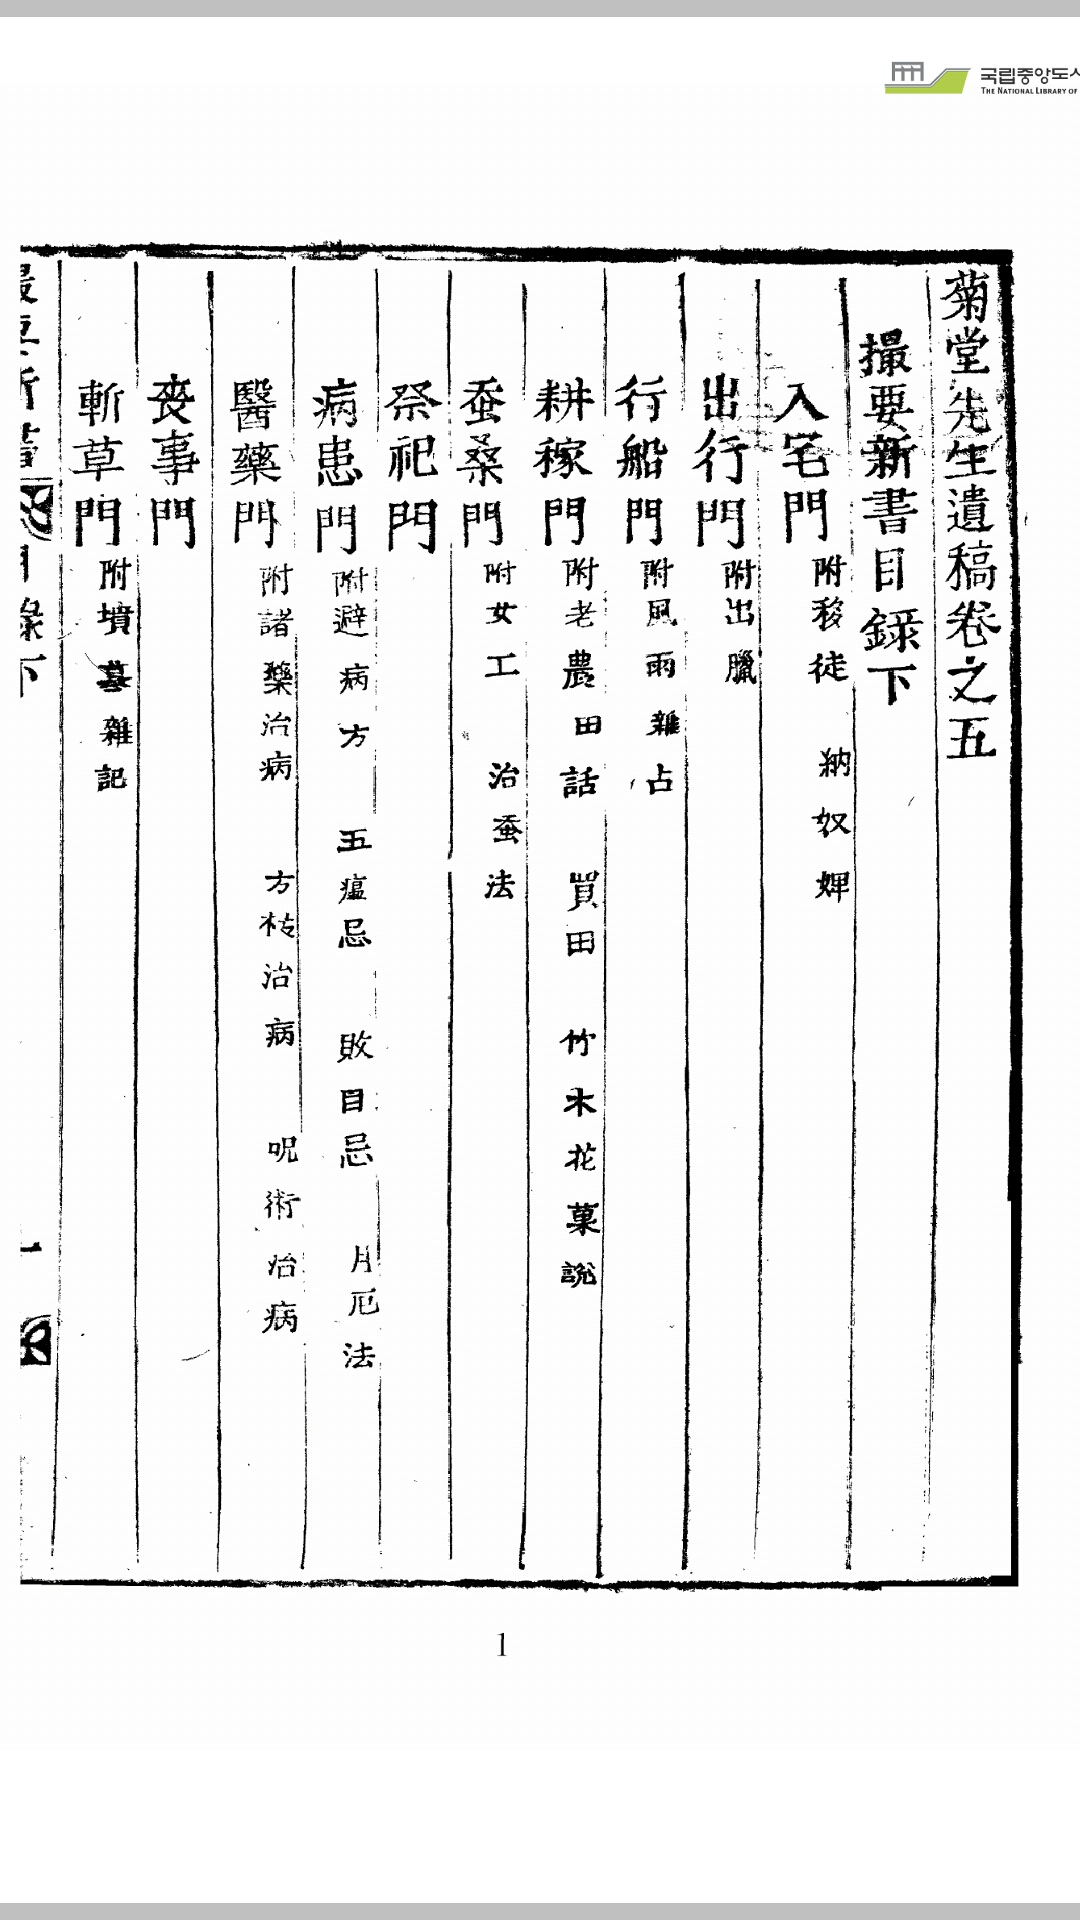 국립중앙도서
THE NATIONAL LIBRARY OF
菊堂先生遺稿卷之五
撮要新書目錄下
入宅門 附移徒 納奴婢
出行門 附出臘
行船門 附風雨雜占
耕稼門 附老農田話 買田 竹木花菓說
蚕桑門 附女工 治蚕法
祭祀門
病患門 附避病方 五瘟忌 敗目忌 月厄法
醫藥門 附諸藥治病 方枝治病 呪術治病
丧事門
斬草門 附墳墓雜記
1